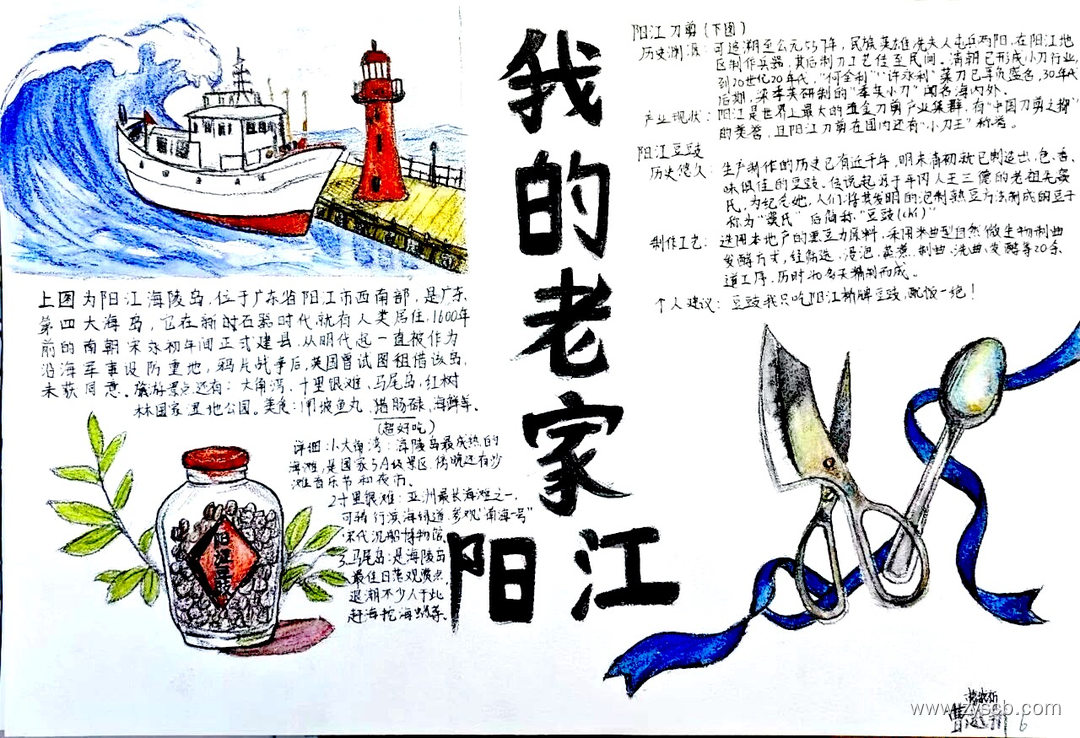 我的老家
阳江
上图为阳江海陵岛,位于广东省阳江市西南部,是广东
第四大海岛,它在新时石器时代就有人类居住,1600年
前的南朝宋永初年间正式建县,从明代起一直被作为
沿海军事设防重地,鸦片战争后,英国曾试图租借该岛,
未获同意。旅游景点还有:大角湾,十里银滩,马尾岛,红树
林国家湿地公园。美食:闸坡鱼丸,猪肠碌,海鲜等。
(超好吃)
详细:1.大角湾:海陵岛最成熟的
海滩,是国家5A级景区,傍晚还有沙
滩音乐节和夜市。
2.十里银滩:亚洲最长海滩之一,
可骑行滨海绿道,参观"南海一号"
宋代沉船博物馆。
3.马尾岛:是海陵岛
最佳日落观赏点
退潮不少人于此
赶海挖海螺等。
阳江刀剪(下图)
历史渊源:可追溯至公元557年,民族英雄冼夫人屯兵两阳,在阳江地
区制作兵器,其后制刀工艺传至民间。清朝已形成小刀行业,
到20世纪20年代,"何全利""许永利"菜刀已享负盛名,30年代
后期,梁季英研制的"季英小刀"闻名海内外。
产业现状:阳江是世界上最大的五金刀剪产业集群,有"中国刀剪之都"
的美誉,且阳江刀剪在国内还有"小刀王"称誉。
阳江豆豉
历史悠久:生产制作的历史已有近千年,明末清初就已制造出,色、香、
味俱佳的豆豉。传说起源于年内人王三儒的老祖先裘
氏,为纪念她,人们将其发明的泡制熟豆方法制成的豆子
称为"裘氏"后简称,"豆豉(chǐ)"
制作工艺:选用本地产的黑豆为原料,采用米曲型自然微生物制曲
发酵方式,经筛选、浸泡、蒸煮、制曲、洗曲、发酵等20余
道工序,历时40多天精制而成。
个人建议:豆豉我只吃阳江桥牌豆豉,就饭一绝!
www.zyscb.com
6